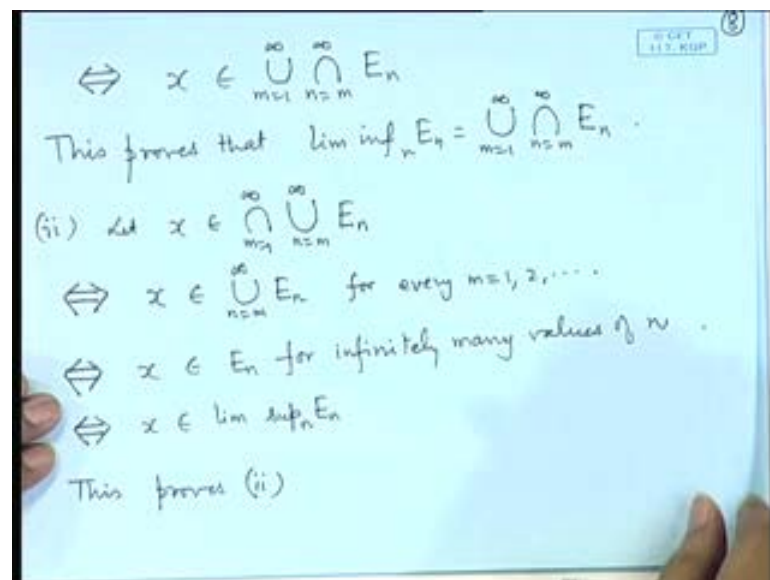 ⑧
© CET
I.I.T. KGP
⇔ x ∈ ∞⋃m=1 ∞⋂n=m En
This proves that lim infn En = ∞⋃m=1 ∞⋂n=m En .
(ii) Let x ∈ ∞⋂m=1 ∞⋃n=m En
⇔ x ∈ ∞⋃n=m En for every m=1, 2, ....
⇔ x ∈ En for infinitely many values of n .
⇔ x ∈ lim supn En
This proves (ii)